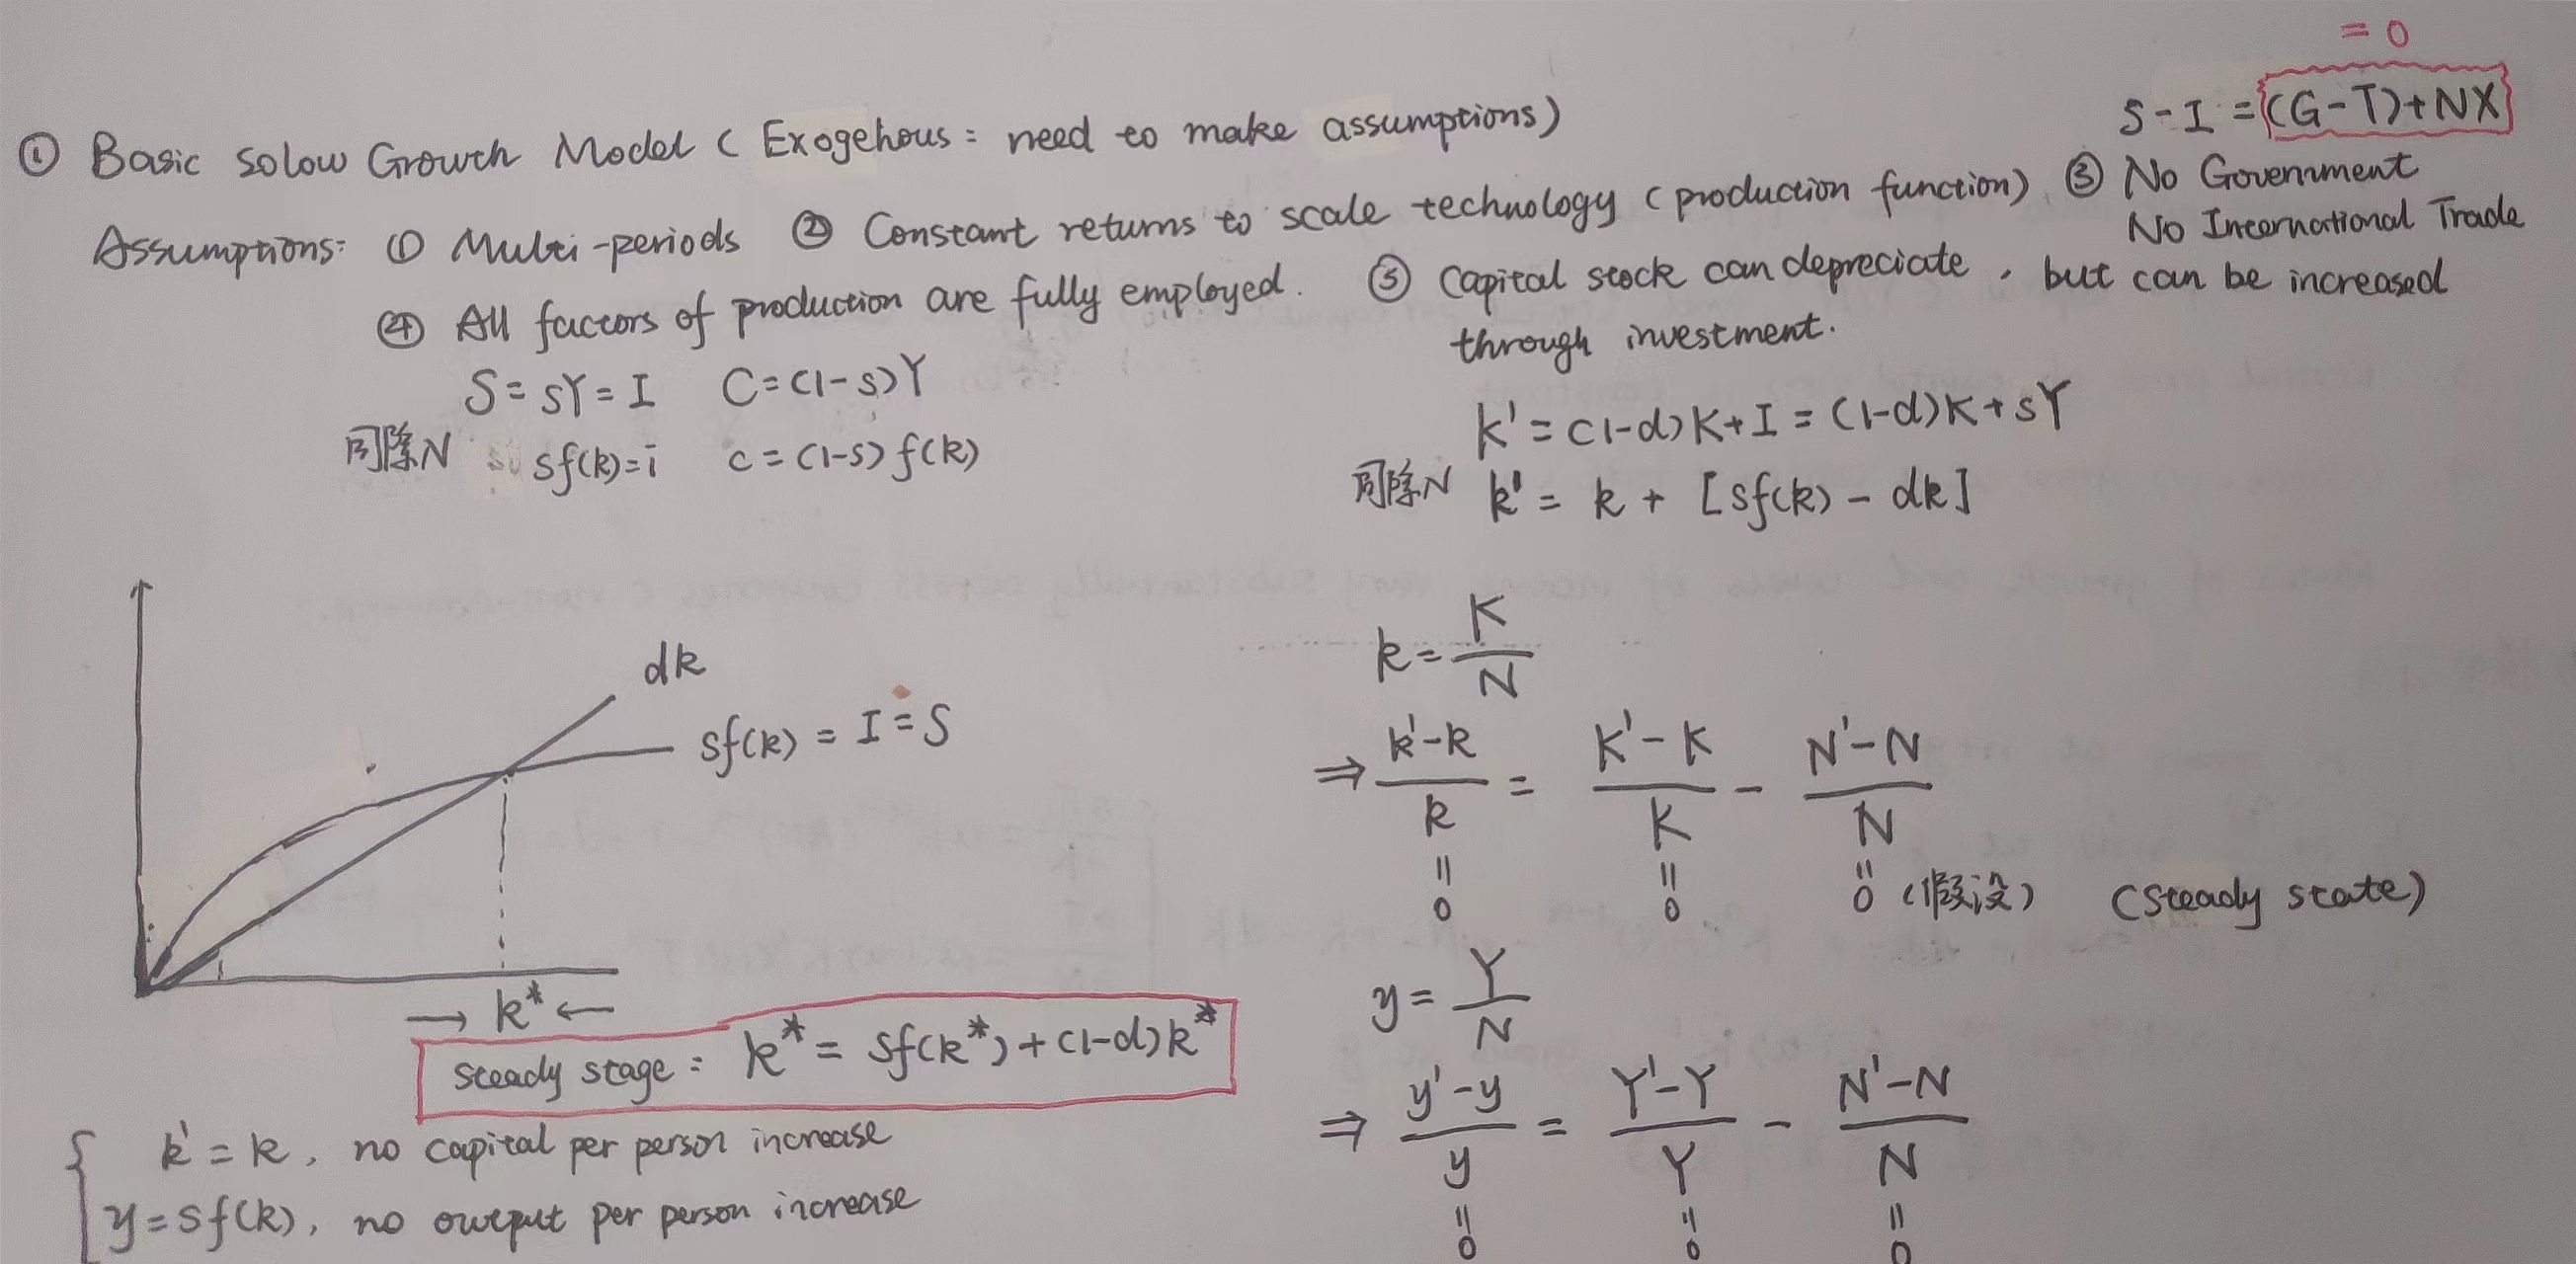 = 0
S - I = (G-T)+NX
① Basic Solow Growth Model ( Exogehous : need to make assumptions)
Assumptions: ① Multi-periods ② Constant returns to scale technology (production function) ③ No Government
No International Trade
④ All factors of production are fully employed. ⑤ Capital stock can depreciate , but can be increased
through investment.
S = sY = I C = (1-s)Y
同除N sf(k) = i c = (1-s) f(k)
K' = (1-d) K + I = (1-d)K + sY
同除N k' = k + [sf(k) - dk]
dk
sf(k) = I = S
→ k* ←
steady stage : k* = sf(k*) + (1-d)k*
k' = k , no capital per person increase
y = sf(k) , no output per person increase
k = K/N
⇒ (k'-k)/k = (K'-K)/K - (N'-N)/N
= 0 = 0 = 0 (假设) (Steady state)
y = Y/N
⇒ (y'-y)/y = (Y'-Y)/Y - (N'-N)/N
= 0 = 0 = 0